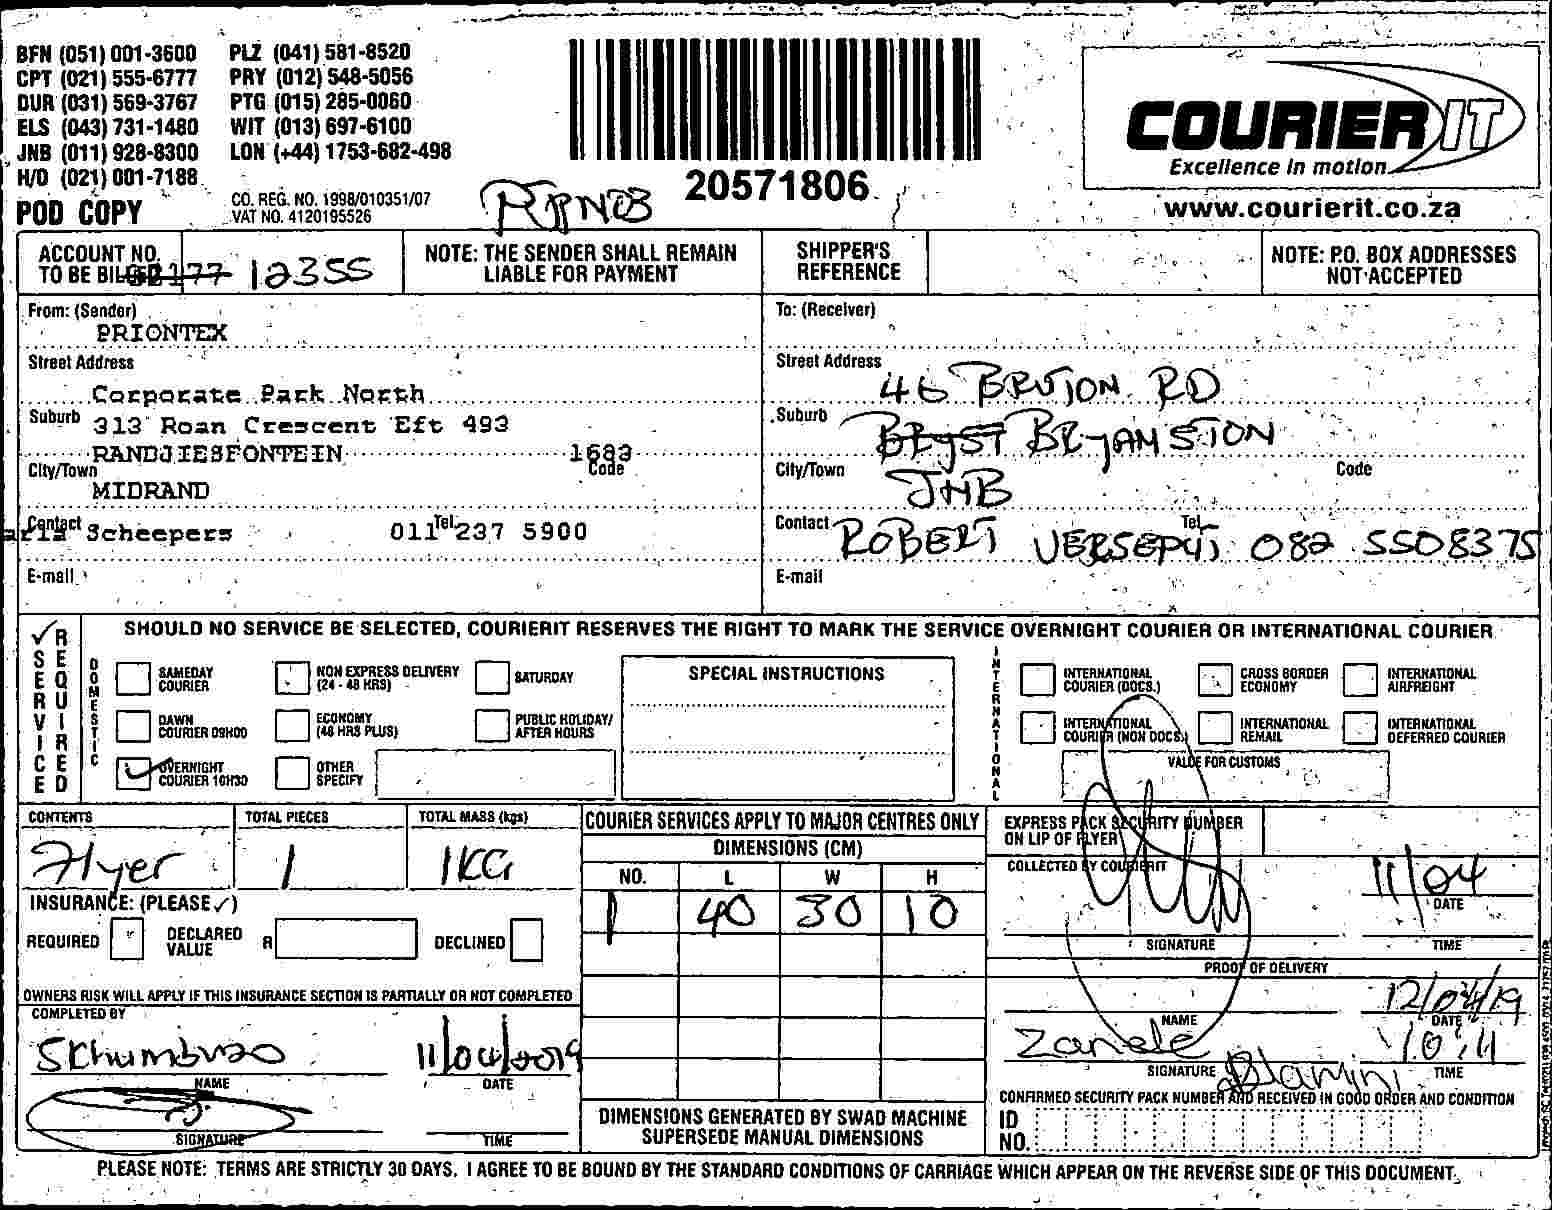 BFN (051) 001-3600 PLZ (041) 581-8520
CPT (021) 555-6777 PRY (012) 548-5056
DUR (031) 569-3767 PTG (015) 285-0060
ELS (043) 731-1480 WIT (013) 697-6100
JNB (011) 928-8300 LON (+44) 1753-682-498
H/O (021) 001-7188
POD COPY
CO. REG. NO. 1998/010351/07
VAT NO. 4120195526
20571806
COURIER IT
Excellence in motion
www.courierit.co.za
ACCOUNT NO.
TO BE BILLED 12355
NOTE: THE SENDER SHALL REMAIN
LIABLE FOR PAYMENT
SHIPPER'S
REFERENCE
NOTE: P.O. BOX ADDRESSES
NOT ACCEPTED
From: (Sender)
PRIONTEX
Street Address
Corporate Park North
Suburb 313 Roan Crescent Eft 493
RANDJIESFONTEIN 1683
City/Town Code
MIDRAND
Contact Scheepers Tel. 011 237 5900
E-mail
To: (Receiver)
Street Address
46 BRUTON RD
Suburb BRYANSTON
City/Town JHB Code
Contact ROBERT VERSEPUT Tel. 082 5508375
E-mail
SERVICE REQUIRED
SHOULD NO SERVICE BE SELECTED, COURIERIT RESERVES THE RIGHT TO MARK THE SERVICE OVERNIGHT COURIER OR INTERNATIONAL COURIER
DOMESTIC
SAMEDAY
COURIER
NON EXPRESS DELIVERY
(24 - 48 HRS)
SATURDAY
DAWN
COURIER 09H00
ECONOMY
(48 HRS PLUS)
PUBLIC HOLIDAY/
AFTER HOURS
OVERNIGHT
COURIER 10H30
OTHER
SPECIFY
SPECIAL INSTRUCTIONS
INTERNATIONAL
INTERNATIONAL
COURIER (DOCS.)
CROSS BORDER
ECONOMY
INTERNATIONAL
AIRFREIGHT
INTERNATIONAL
COURIER (NON DOCS.)
INTERNATIONAL
REMAIL
INTERNATIONAL
DEFERRED COURIER
VALUE FOR CUSTOMS
CONTENTS TOTAL PIECES TOTAL MASS (kgs)
Flyer 1 1KG
INSURANCE: (PLEASE ✓)
REQUIRED DECLARED
VALUE R DECLINED
OWNERS RISK WILL APPLY IF THIS INSURANCE SECTION IS PARTIALLY OR NOT COMPLETED
COMPLETED BY
Skhumbuzo 11/04/2019
NAME DATE
SIGNATURE TIME
COURIER SERVICES APPLY TO MAJOR CENTRES ONLY
DIMENSIONS (CM)
NO. L W H
1 40 30 10
DIMENSIONS GENERATED BY SWAD MACHINE
SUPERSEDE MANUAL DIMENSIONS
EXPRESS PACK SECURITY NUMBER
ON LIP OF FLYER
COLLECTED BY COURIERIT
11/04
DATE
SIGNATURE TIME
PROOF OF DELIVERY
12/04/19
NAME DATE
Zanele 10:11
SIGNATURE TIME
Dlamini
CONFIRMED SECURITY PACK NUMBER AND RECEIVED IN GOOD ORDER AND CONDITION
ID
NO.
PLEASE NOTE: TERMS ARE STRICTLY 30 DAYS. I AGREE TO BE BOUND BY THE STANDARD CONDITIONS OF CARRIAGE WHICH APPEAR ON THE REVERSE SIDE OF THIS DOCUMENT.